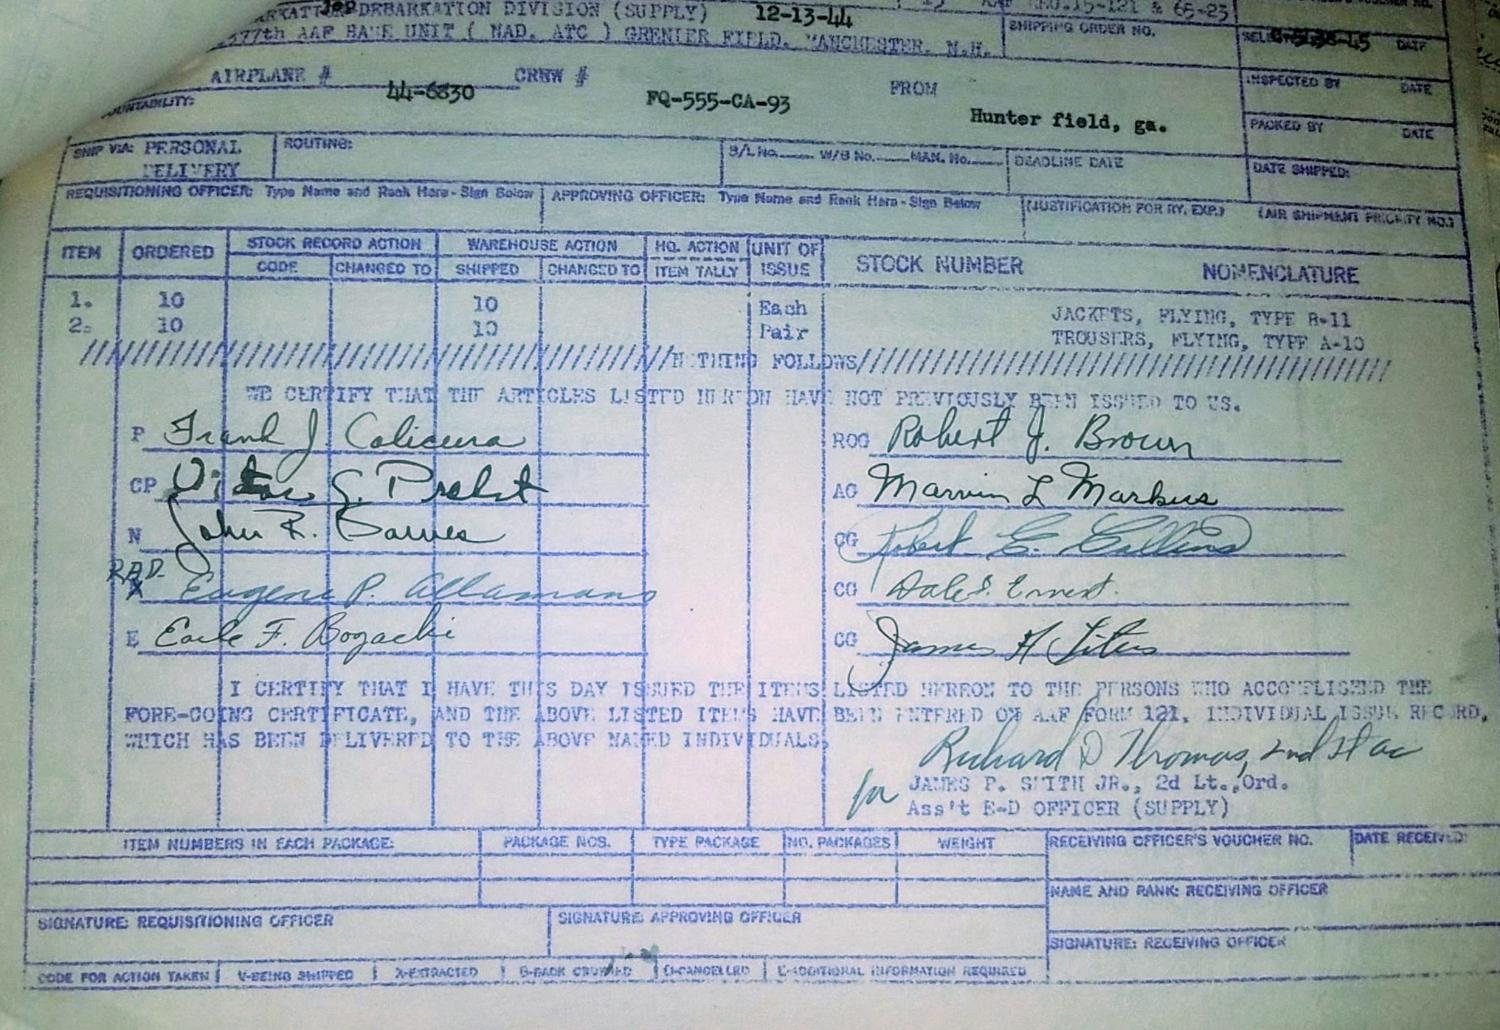 DEBARKATION DIVISION (SUPPLY) 12-13-44 15 AAF REG.15-121 & 65-23
1377th AAF BASE UNIT ( NAD. ATC ) GRENIER FIELD. MANCHESTER. N.H. SHIPPING ORDER NO. DATE
AIRPLANE # 44-6830 CREW # FQ-555-CA-93 FROM Hunter field, ga. INSPECTED BY DATE
PACKED BY DATE
SHIP VIA: PERSONAL DELIVERY ROUTING: B/L No. W/B No. MAN. No. DEADLINE DATE DATE SHIPPED:
REQUISITIONING OFFICER: Type Name and Rank Here - Sign Below APPROVING OFFICER: Type Name and Rank Here - Sign Below (JUSTIFICATION FOR RY. EXP.) (AIR SHIPMENT PRIORITY NO.)
ITEM ORDERED STOCK RECORD ACTION WAREHOUSE ACTION HQ. ACTION UNIT OF ISSUE STOCK NUMBER NOMENCLATURE
CODE CHANGED TO SHIPPED CHANGED TO ITEM TALLY
1. 10 10 Each JACKETS, FLYING, TYPE B-11
2. 10 10 Pair TROUSERS, FLYING, TYPE A-10
////////////////////////////////NOTHING FOLLOWS////////////////////////////////
WE CERTIFY THAT THE ARTICLES LISTED HEREON HAVE NOT PREVIOUSLY BEEN ISSUED TO US.
P Frank J. ROG Robert J. Brown
CP Victor G. Probst AG Marvin L Markus
N John R. Barnes CG Robert E. Collins
RAD. Eugene P. CG Dale E. Ernest.
E Earle F. Bogacki CG James H
I CERTIFY THAT I HAVE THIS DAY ISSUED THE ITEMS LISTED HEREON TO THE PERSONS WHO ACCOMPLISHED THE
FORE-GOING CERTIFICATE, AND THE ABOVE LISTED ITEMS HAVE BEEN ENTERED ON AAF FORM 121, INDIVIDUAL ISSUE RECORD,
WHICH HAS BEEN DELIVERED TO THE ABOVE NAMED INDIVIDUALS.
Richard D Thomas, 2nd Lt ac
for JAMES P. SMITH JR., 2d Lt.,Ord.
Ass't E-D OFFICER (SUPPLY)
ITEM NUMBERS IN EACH PACKAGE: PACKAGE NOS. TYPE PACKAGE NO. PACKAGES WEIGHT RECEIVING OFFICER'S VOUCHER NO. DATE RECEIVED:
NAME AND RANK: RECEIVING OFFICER
SIGNATURE: REQUISITIONING OFFICER SIGNATURE: APPROVING OFFICER
SIGNATURE: RECEIVING OFFICER
CODE FOR ACTION TAKEN V-BEING SHIPPED X-EXTRACTED B-BACK ORDERED C-CANCELLED E-ADDITIONAL INFORMATION REQUIRED